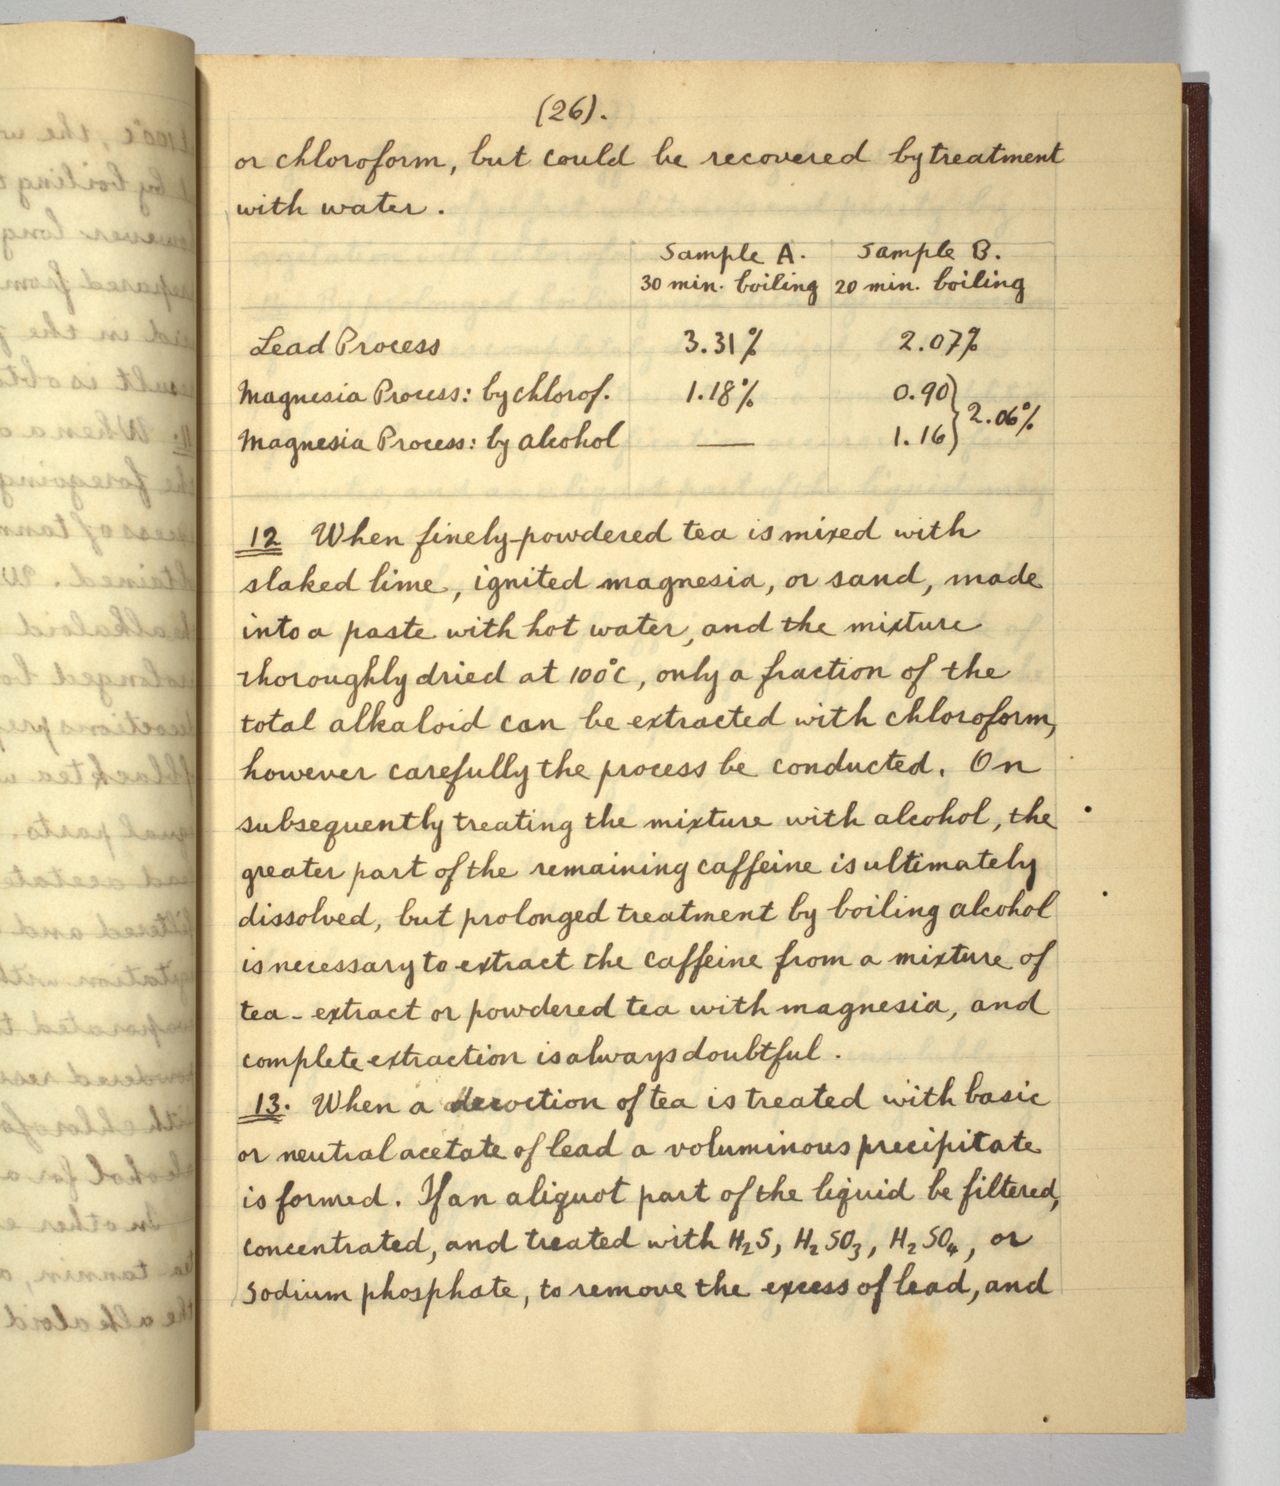 (26).
or chloroform, but could be recovered by treatment
with water.
Sample A. Sample B.
30 min. boiling 20 min. boiling
Lead Process 3.31% 2.07%
Magnesia Process: by chlorof. 1.18% 0.90
2.06%
Magnesia Process: by alcohol — 1.16
12 When finely-powdered tea is mixed with
slaked lime, ignited magnesia, or sand, made
into a paste with hot water, and the mixture
thoroughly dried at 100°C, only a fraction of the
total alkaloid can be extracted with chloroform,
however carefully the process be conducted. On
subsequently treating the mixture with alcohol, the
greater part of the remaining caffeine is ultimately
dissolved, but prolonged treatment by boiling alcohol
is necessary to extract the caffeine from a mixture of
tea-extract or powdered tea with magnesia, and
complete extraction is always doubtful.
13. When a decoction of tea is treated with basic
or neutral acetate of lead a voluminous precipitate
is formed. If an aliquot part of the liquid be filtered,
concentrated, and treated with H₂S, H₂SO₃, H₂SO₄, or
Sodium phosphate, to remove the excess of lead, and